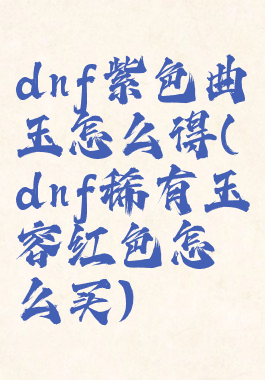 dnf紫色曲
玉怎么得(
dnf稀有玉
容红色怎
么买)